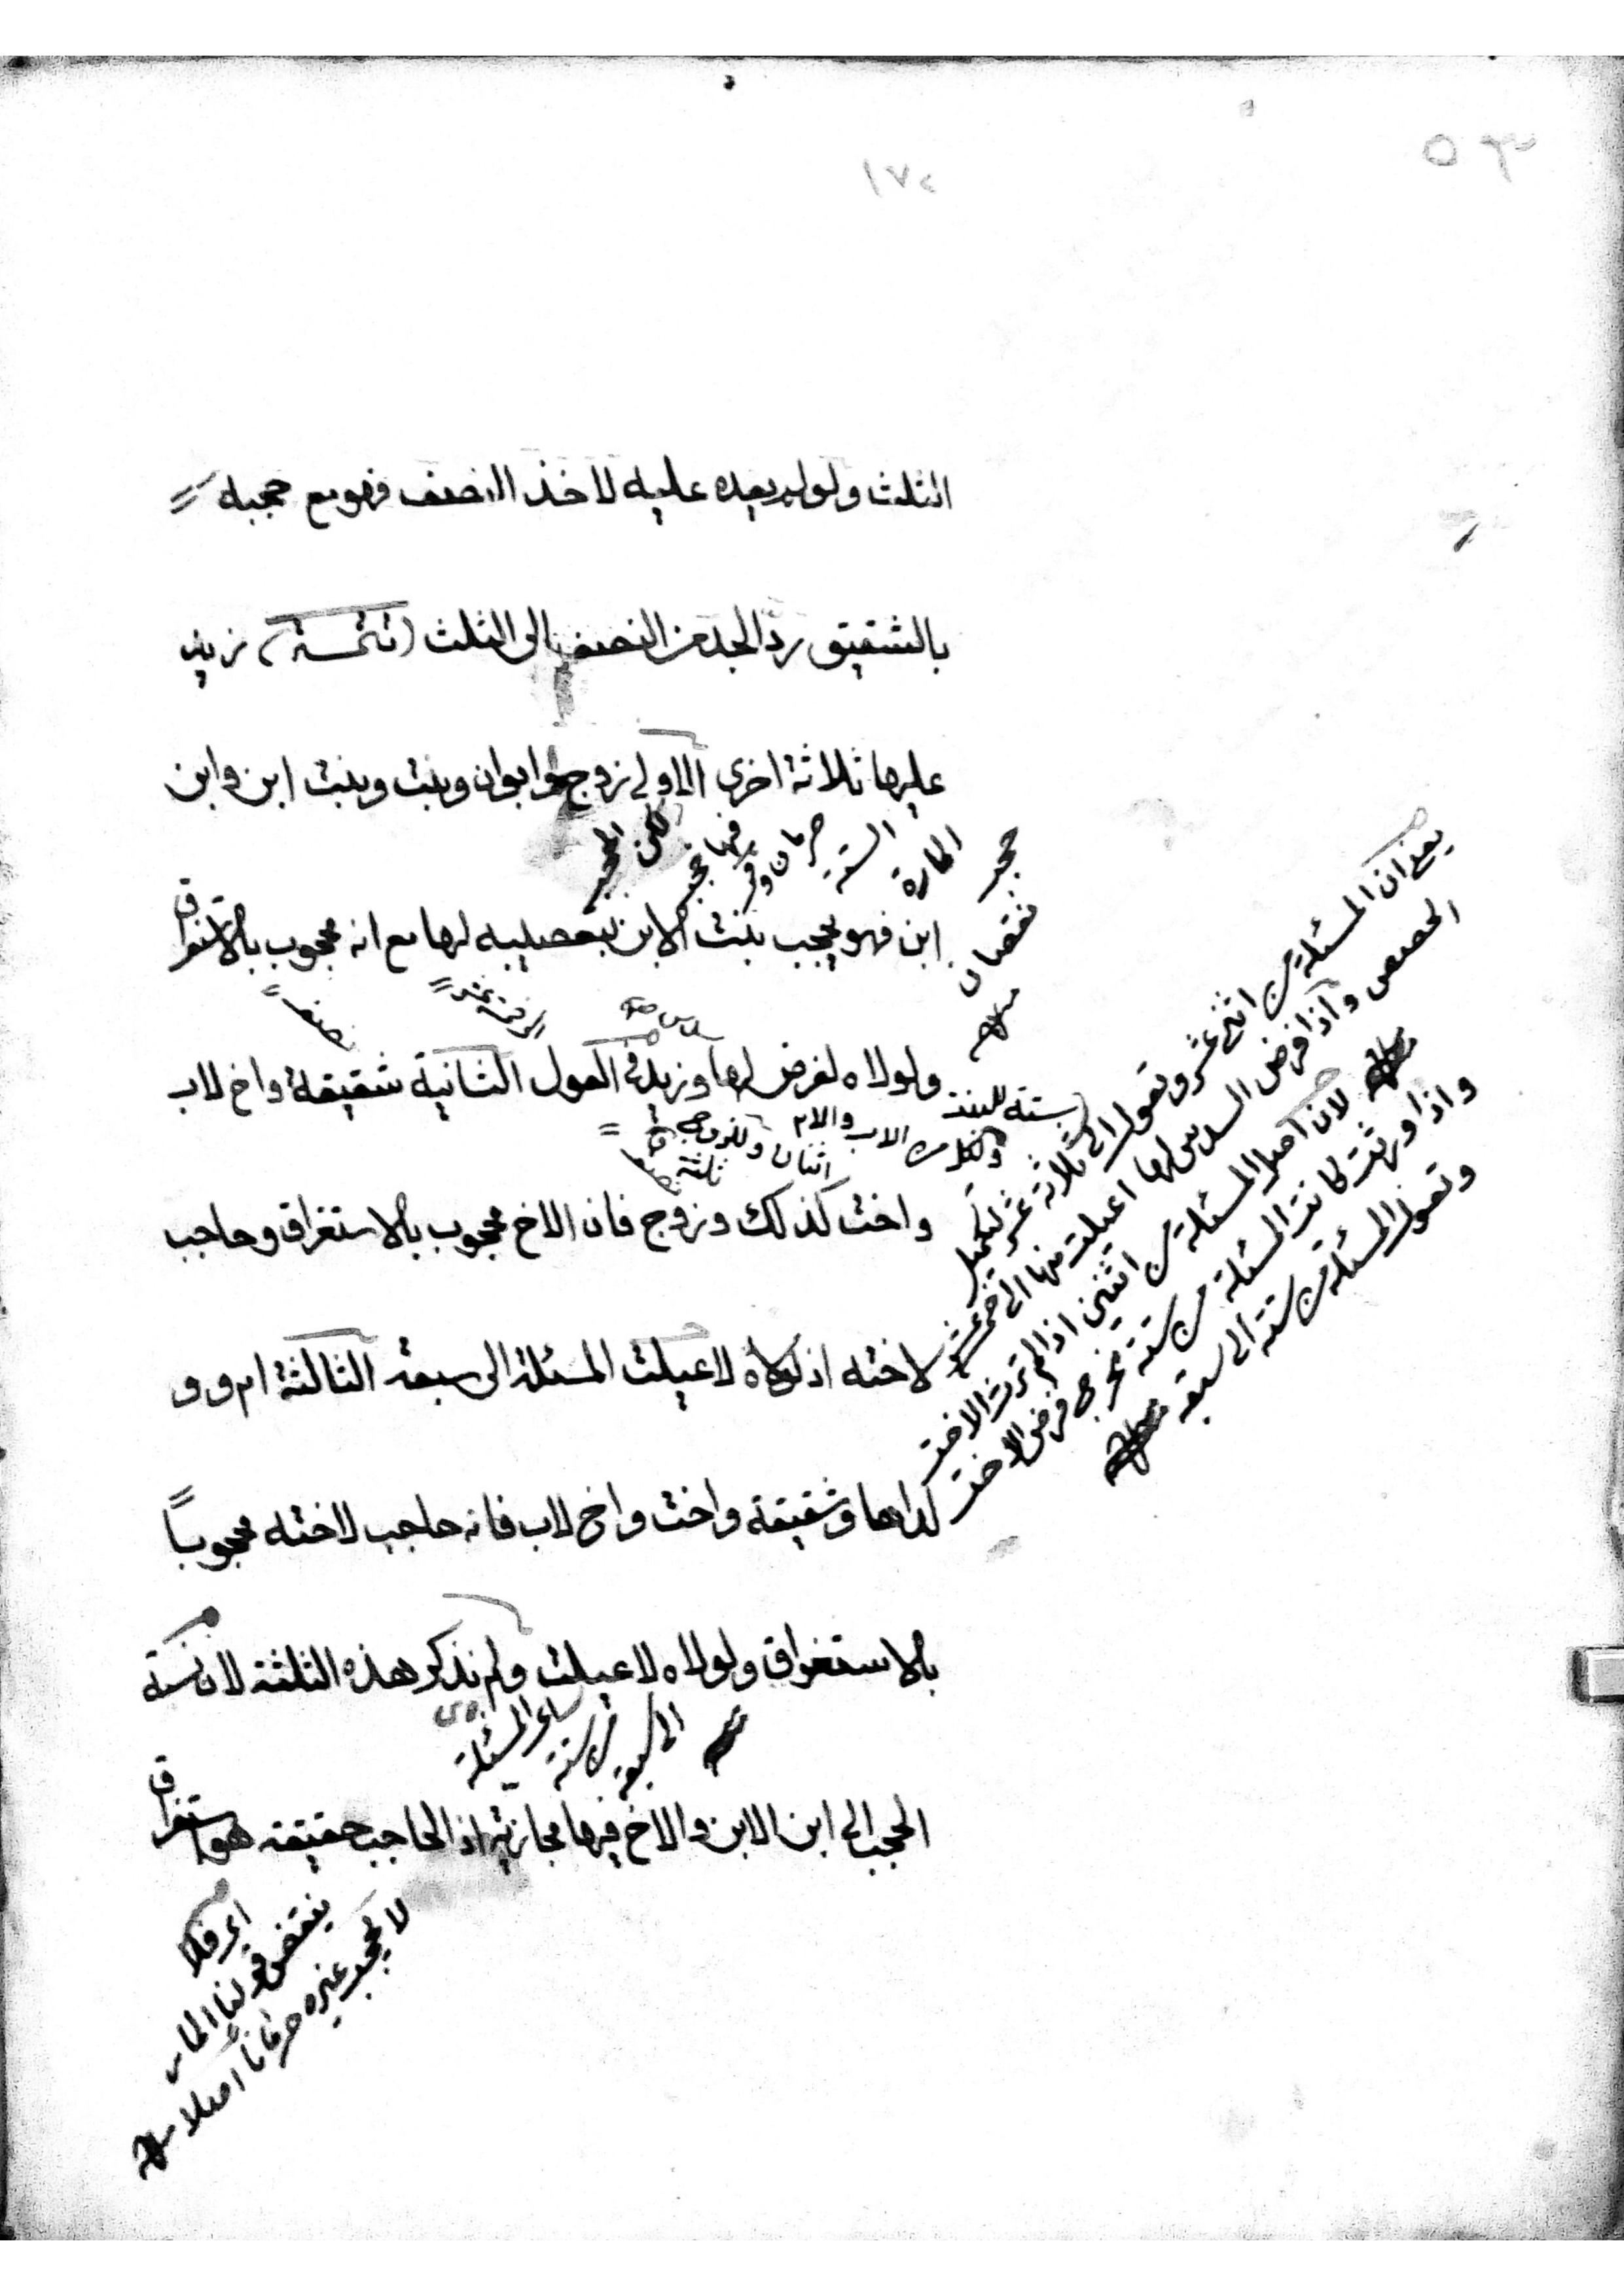 ١٧٢
٥٣
الثلث ولو لم يعده عليه لاخذ النصف فهو مع حجبه
بالشقيق ردّ الجد من النصف الى الثلث (تتمة) زيد
عليها ثلاثة اخرى الاولى زوج وابوان وبنت وبنت ابن وابن
ابن فهو يحجب بنت الابن بتعصيبه لها مع انه محجوب بالاستغراق
ولولاه لفرض لها وزيد في العول الثانية شقيقة واخ لاب
واخت كذلك وزوج فان الاخ محجوب بالاستغراق وحاجب
لاخته اذ لولاه لاعيلت المسئلة الى سبعة الثالثة ام و
ولداها وشقيقة واخت واخ لاب فانه حاجب لاخته محجوباً
بالاستغراق ولولاه لاعيلت ولم نذكر هذه الثلثة لان نسبة
الحجب الى ابن الابن والاخ فيها مجازية اذ الحاجب حقيقة هو استغراق
لكن الحجب
فيها حجب
حرمان و
الستة
المارة
حجب
نقصان
يعني ان المسئلة من اثني عشر وتعول الى ثلاثة عشر لتكميل
الحصص واذا فرض السدس لها اعيلت منها الى خمسة عشر
ستة للبنت
ولكل من الاب والام
اثنان وللزوج
ثلثة
لان اصل المسئلة من اثنين اذا لم ترث الاخت
واذا ورثت كانت المسئلة من ستة مخرج فرض الاخت
وتعول المسئلة من ستة الى سبعة
المسئلة
من ستة
الى سبعة
اي فلا
ينتقض قولنا المار
لا يحجب غيره حرمانا اصلا